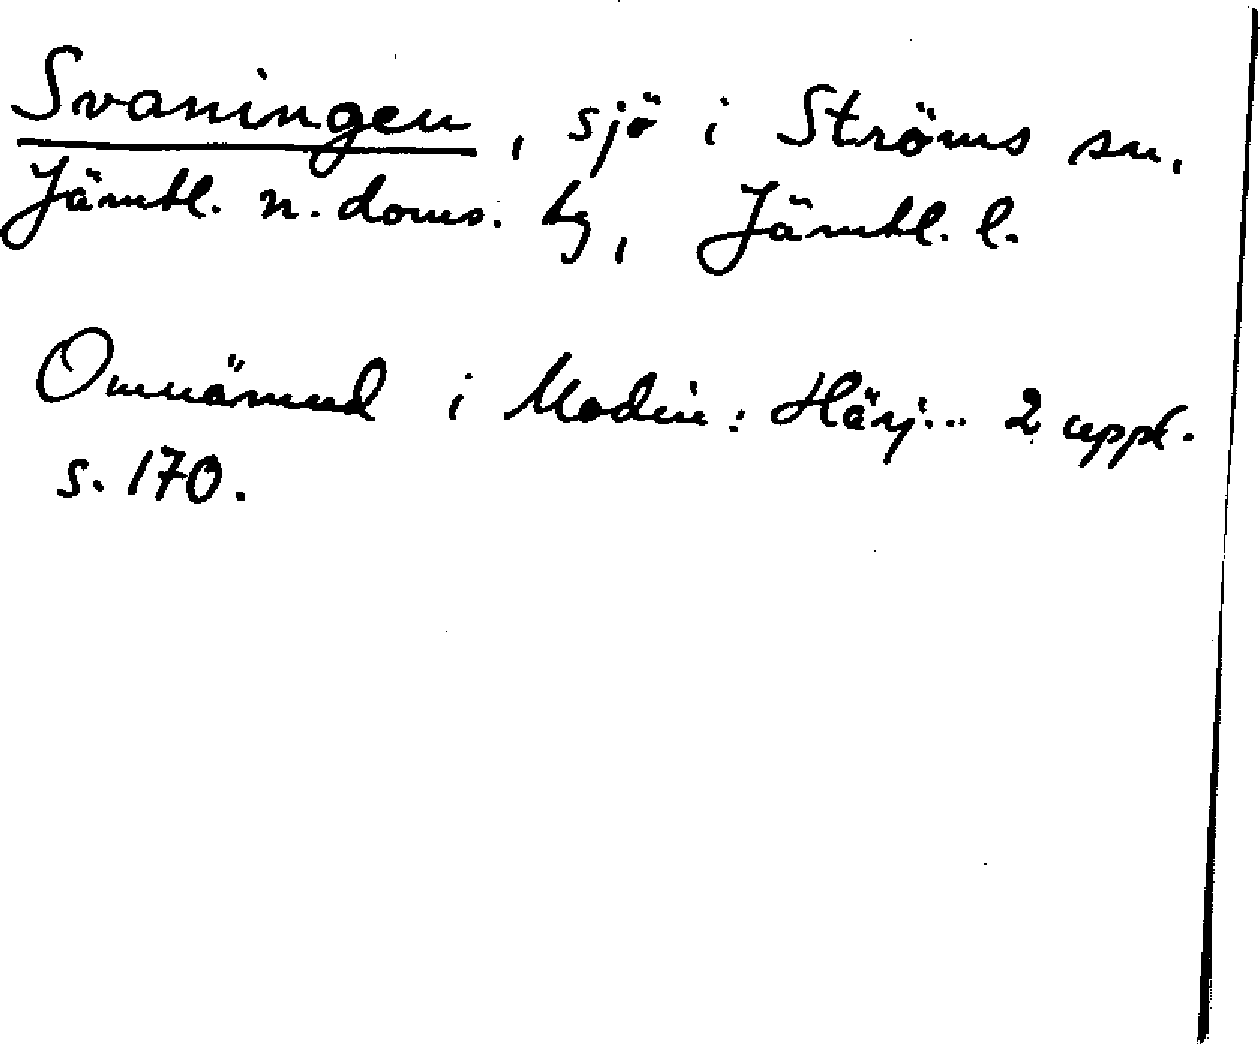 Svaningen, sjö i Ströms sn,
Jämtl. n. doms. tg, Jämtl. l.
Omnämnd i Modin: Härj... 2 uppl.
s. 170.